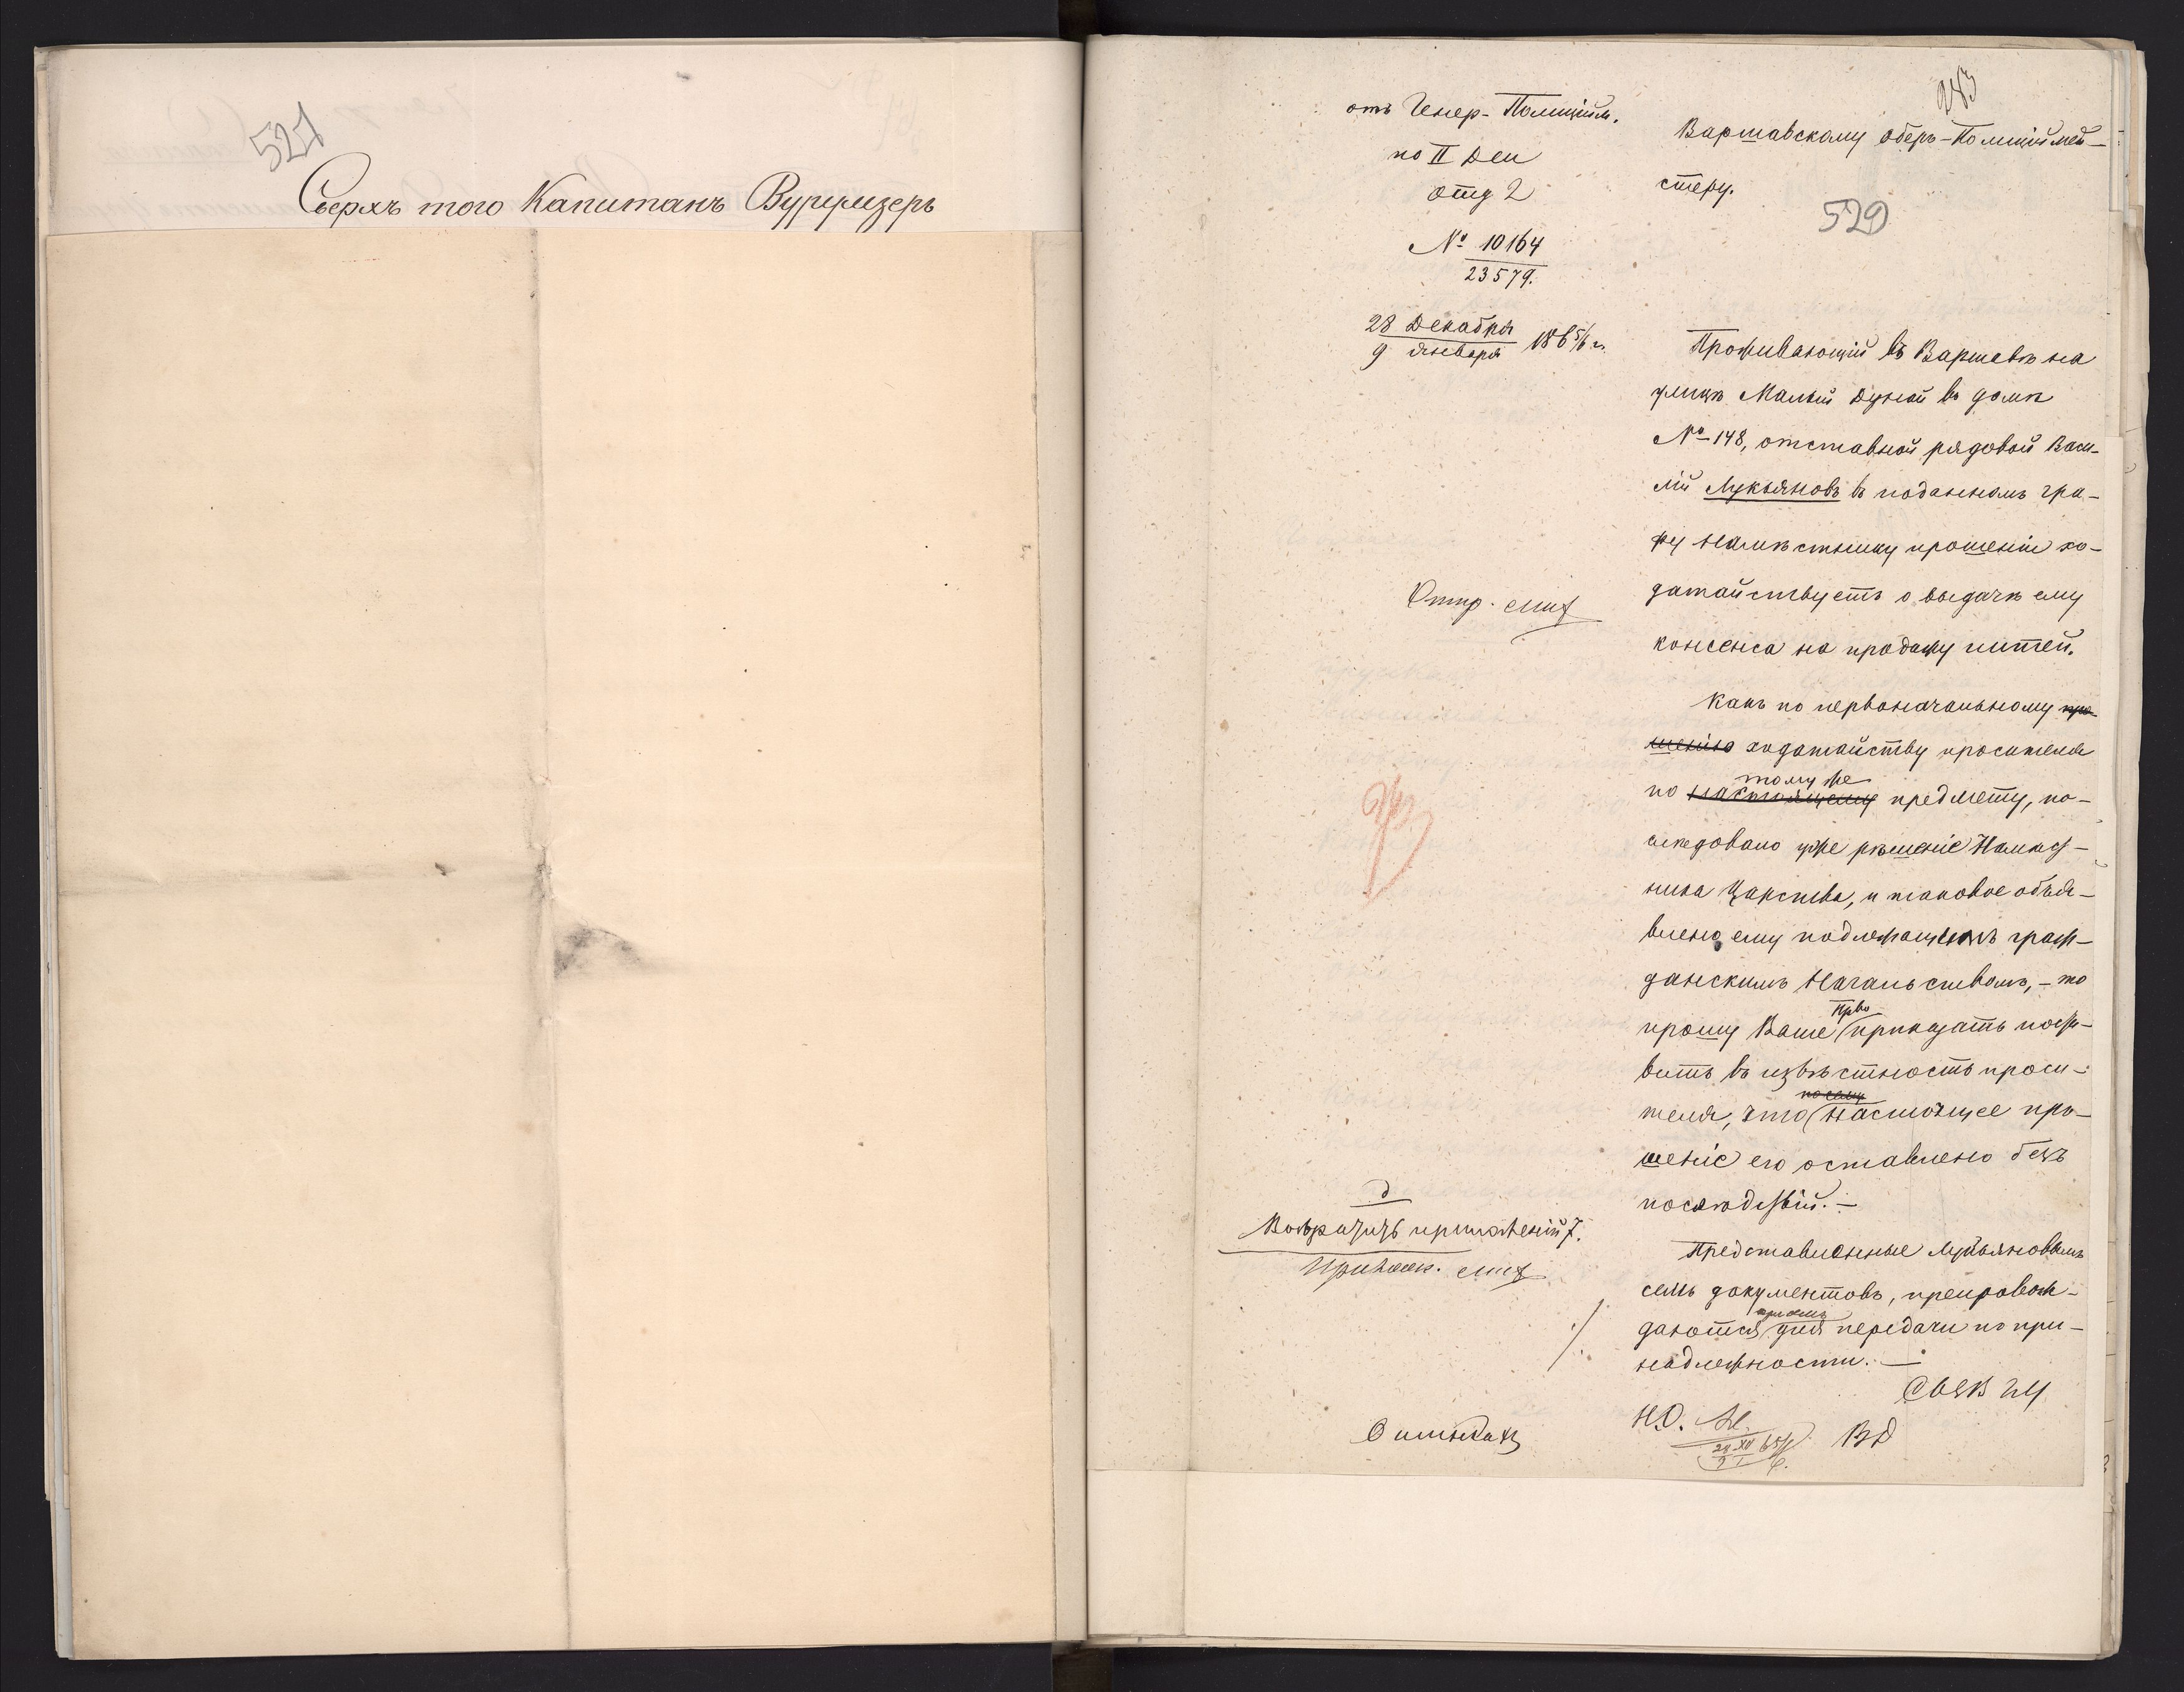 521
Сверхъ того Капитанъ
283
отъ Генер-Полиційм.
по II Деп
Отд 2
№ 10164
23579.
28 Декабря
9 Января 1865/6 г.
Варшавскому Оберъ-Полиціймей-
стеру.
529
Проживающій въ Варшавѣ на
улицѣ Малый Дунай въ домѣ
№ 148, отставной рядовой Васи-
лій Лукьяновъ въ поданномъ гра-
фу Намѣстнику прошеніи хо-
датайствуетъ о выдачѣ ему
консенса на продажу питей.
Какъ по первоначальному про-
шенію ходатайству просителя
тому же
по настоящему предмету, по-
слѣдовало уже рѣшеніе Намѣст-
ника Царства, и таковое объя-
влено ему подлежащимъ граж-
данскимъ Начальствомъ, - то
Прво
прошу Ваше приказать поста-
вить въ извѣстность проси-
по сему
теля, что настоящее про-
шеніе его оставлено безъ
послѣдствій. -
Представленные Лукьяновымъ
семь документовъ, препровож-
при семъ
даются для передачи по при-
надлежности. -
Отпр.
приложеній 7.
Н.О.
28 XII 65/6
9 I
ВД